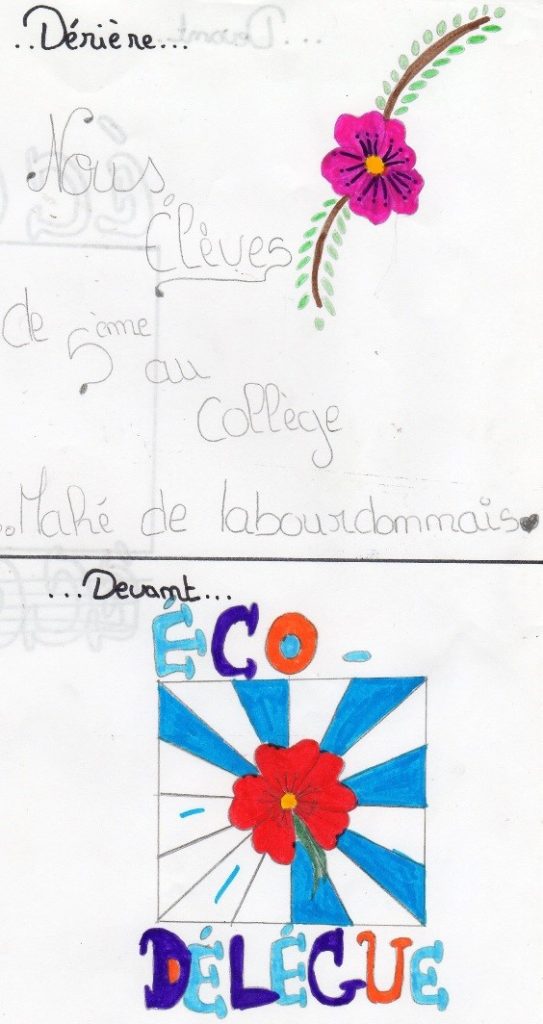 ..Dérière...
Nous,
Élèves
de 5ème au
collège
..Mahé de labourdommais.
...Devamt...
ÉCO-
DÉLÉGUE